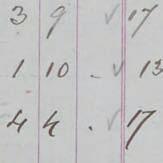 3 9 √ 17
1 10 - √ 13
4 4 . √ 17